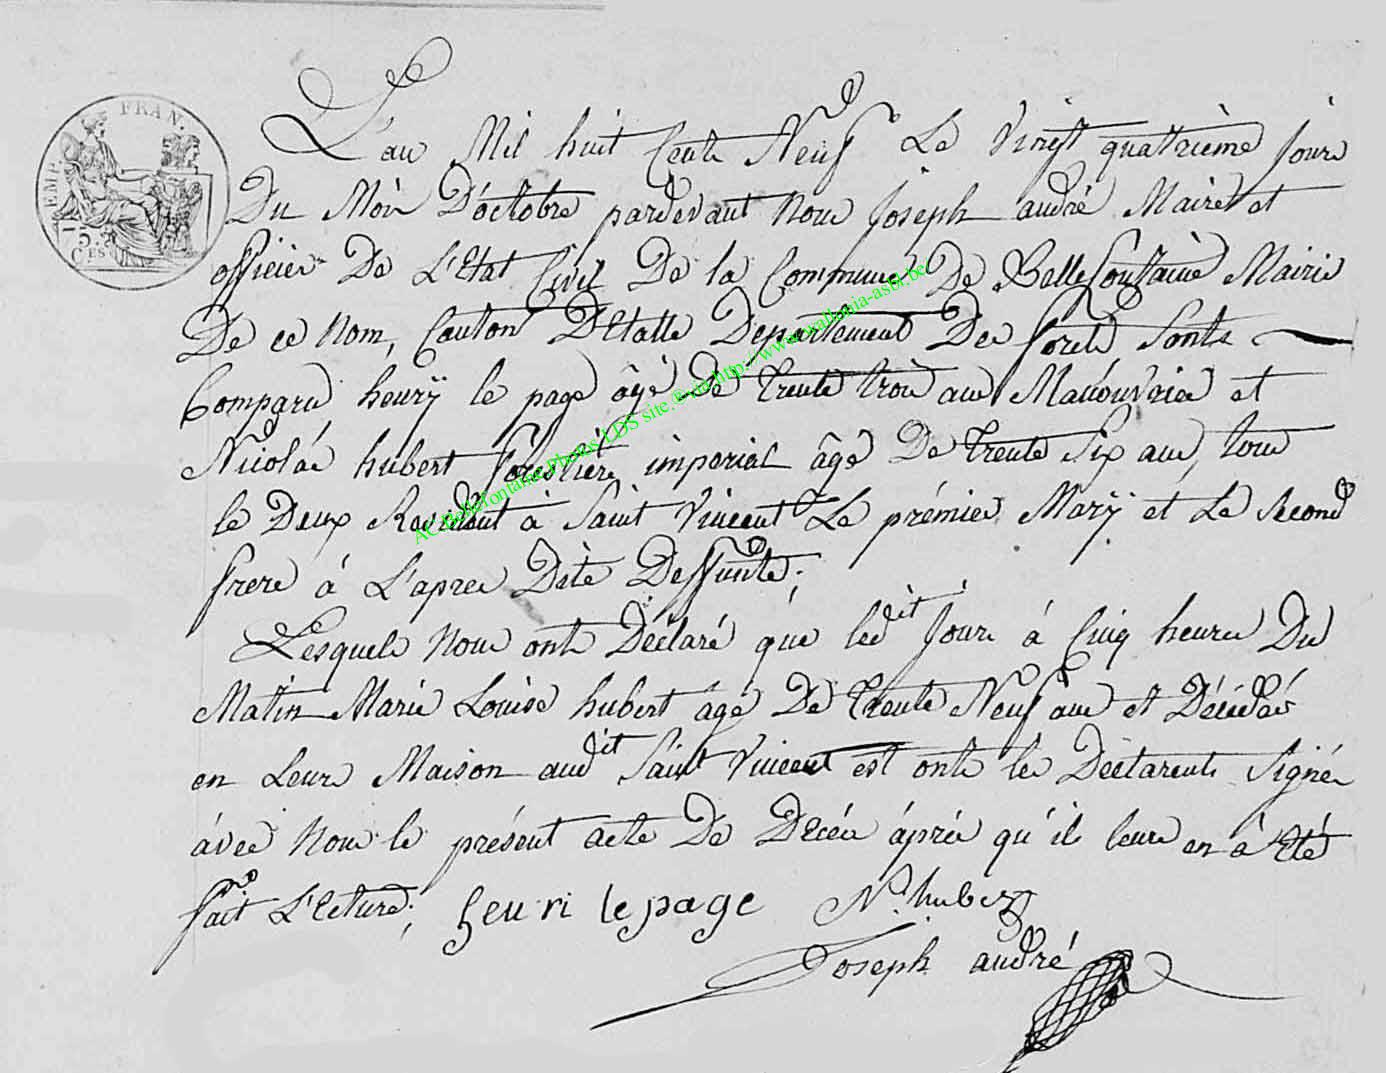 EMP. FRAN.
75
CES
L'an Mil huit Cents Neuf Le Vingt quatrième Jour
Du Mois D'octobre pardevant Nous Joseph andré Maire et
officier De L'Etat Civil De la Commune De Bellefontaine Mairie
De ce Nom, Canton D'Etalle Departement Des forets Sonts
Comparu henrÿ le page âgé De trente trois ans Manouvrier et
Nicolas hubert forestiere imperial âgé De trente Six ans, tous
le Deux Residant à Saint Vincent Le prémier Marÿ et Le Second
frere á L'apres Dite Deffunte;
Lesquels Nous onts Déclaré que ledit Jour á Cinq heures Du
Matin Marie Louise hubert agé De trente Neuf ans et Décédée
en Leurs Maison audit Saint Vincent est onts les Déclarents Signés
ávec Nous le présent acte De Décés áprés qu'ils leurs en á été
fait L'Ecture; henri lepage N. hubert
Joseph andré
AC Bellefontaine Photos LDS site ® via http://www.wallonia-asbl.be/